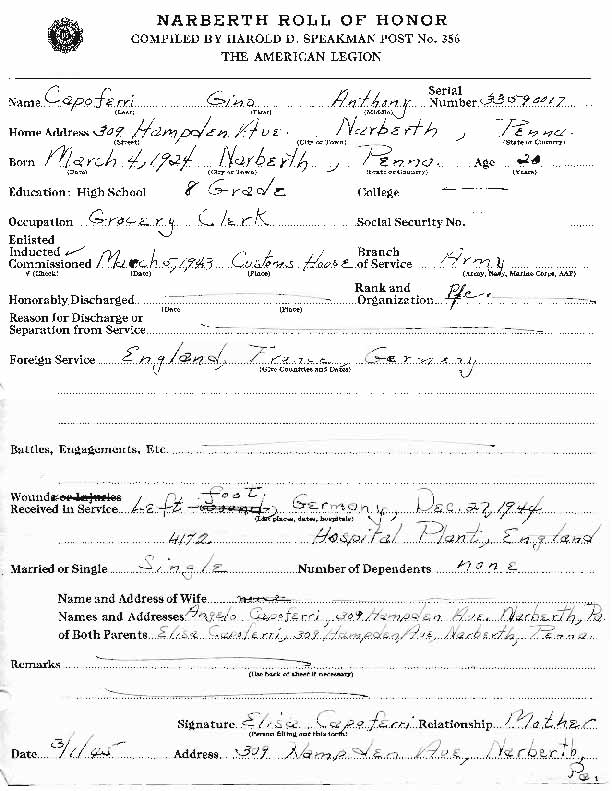 NARBERTH ROLL OF HONOR
COMPILED BY HAROLD D. SPEAKMAN POST No. 356
THE AMERICAN LEGION
Name Capoferri Gino Anthony Serial Number 33590017
(Last) (First) (Middle)
Home Address 309 Hampden Ave. Narberth, Penna.
(Street) (City or Town) (State or Country)
Born March 4, 1924 Narberth, Penna. Age 20
(Date) (City or Town) (State or Country) (Years)
Education: High School 8 Grade College
Occupation Grocery Clerk Social Security No.
Enlisted
Inducted ✓ Branch
Commissioned March 5, 1943 Customs House of Service Army
(Check) (Date) (Place) (Army, Navy, Marine Corps, AAF)
Rank and
Honorably Discharged Organization Pfc.
(Date (Place)
Reason for Discharge or
Separation from Service
Foreign Service England, France, Germany
(Give Countries and Dates)
Battles, Engagements, Etc.
Wounds or Injuries foot
Received in Service Left, Germany, Dec. 27, 1944
(List places, dates, hospitals)
4172 Hospital Plant, England
Married or Single Single Number of Dependents none
Name and Address of Wife none
Names and Addresses Angelo Capoferri, 309 Hampden Ave. Narberth, Pa.
of Both Parents Elisa Capoferri, 309 Hampden Ave, Narberth, Penna
Remarks
(Use back of sheet if necessary)
Signature Elisa Capoferri Relationship Mother
(Person filling out this form)
Date 3/1/45 Address 309 Hampden Ave, Narberth,
Pa.